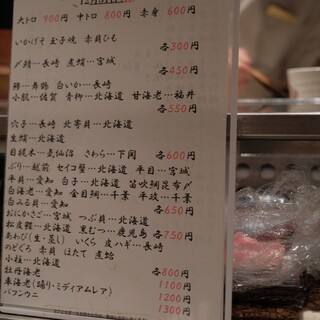 大トロ 900円 中トロ 800円 赤身 600円
いかげそ 玉子焼 赤貝ひも
各300円
〆鯖…長崎 煮蛸…宮城
各450円
鯵…舞鶴 白いか…長崎
小肌…佐賀 青柳…北海道 甘海老…福井
各550円
穴子…長崎 北寄貝…北海道
生蛸…北海道
目鯛…気仙沼 さわら…下関
各600円
ぶり…越前 セイコ蟹…北海道 平目…宮城
平貝…愛知 白子…北海道 笛吹鯛昆布〆
白海老…愛知 金目鯛…千葉 平政…千葉
白みる貝…愛知
各650円
おにかさご…宮城 つぶ貝…北海道
松皮鰈…北海道 黒むつ…鹿児島
各750円
あわび(生・蒸し) いくら 皮ハギ…長崎
のどぐろ 赤貝 ほたて 煮蛤
小柱…北海道
各800円
牡丹海老
1100円
車海老(踊り・ミディアムレア)
1200円
バフンウニ
1300円